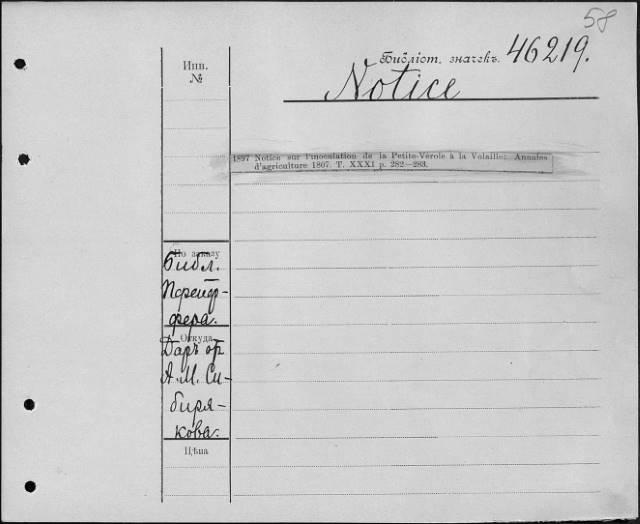 58
Библіот. значекъ. 46219.
Notice
Инв.
№
1897 Notice sur l'inoculation de la Petite-Vérole à la Volaille: Annales
d'agriculture 1807. T. XXXI p. 282—283.
По заказу
Библ.
Пфейф-
фера.
Откуда
Даръ от
А. М. Си-
биря-
кова.
Цѣна